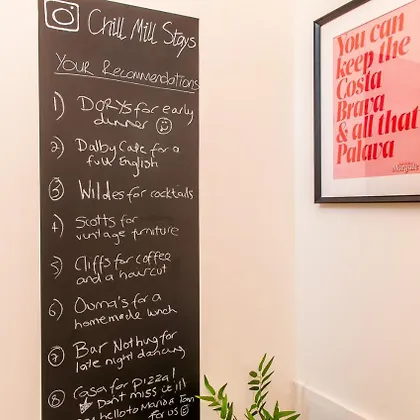 Chill Mill Stays
Your Recommendations
1) DORYS for early
dinner
2) Dalby Cafe for a
full English
3) Wildes for cocktails
4) Scotts for
vintage furniture
5) Cliffs for coffee
and a haircut
6) Ouma's for a
homemade lunch
7) Bar Nothing for
late night dancing
8) Casa for Pizza!
Don't miss it!!!
hello to Mario & Tom
for us
You can
keep the
Costa
Brava
& all that
Palava
Margate